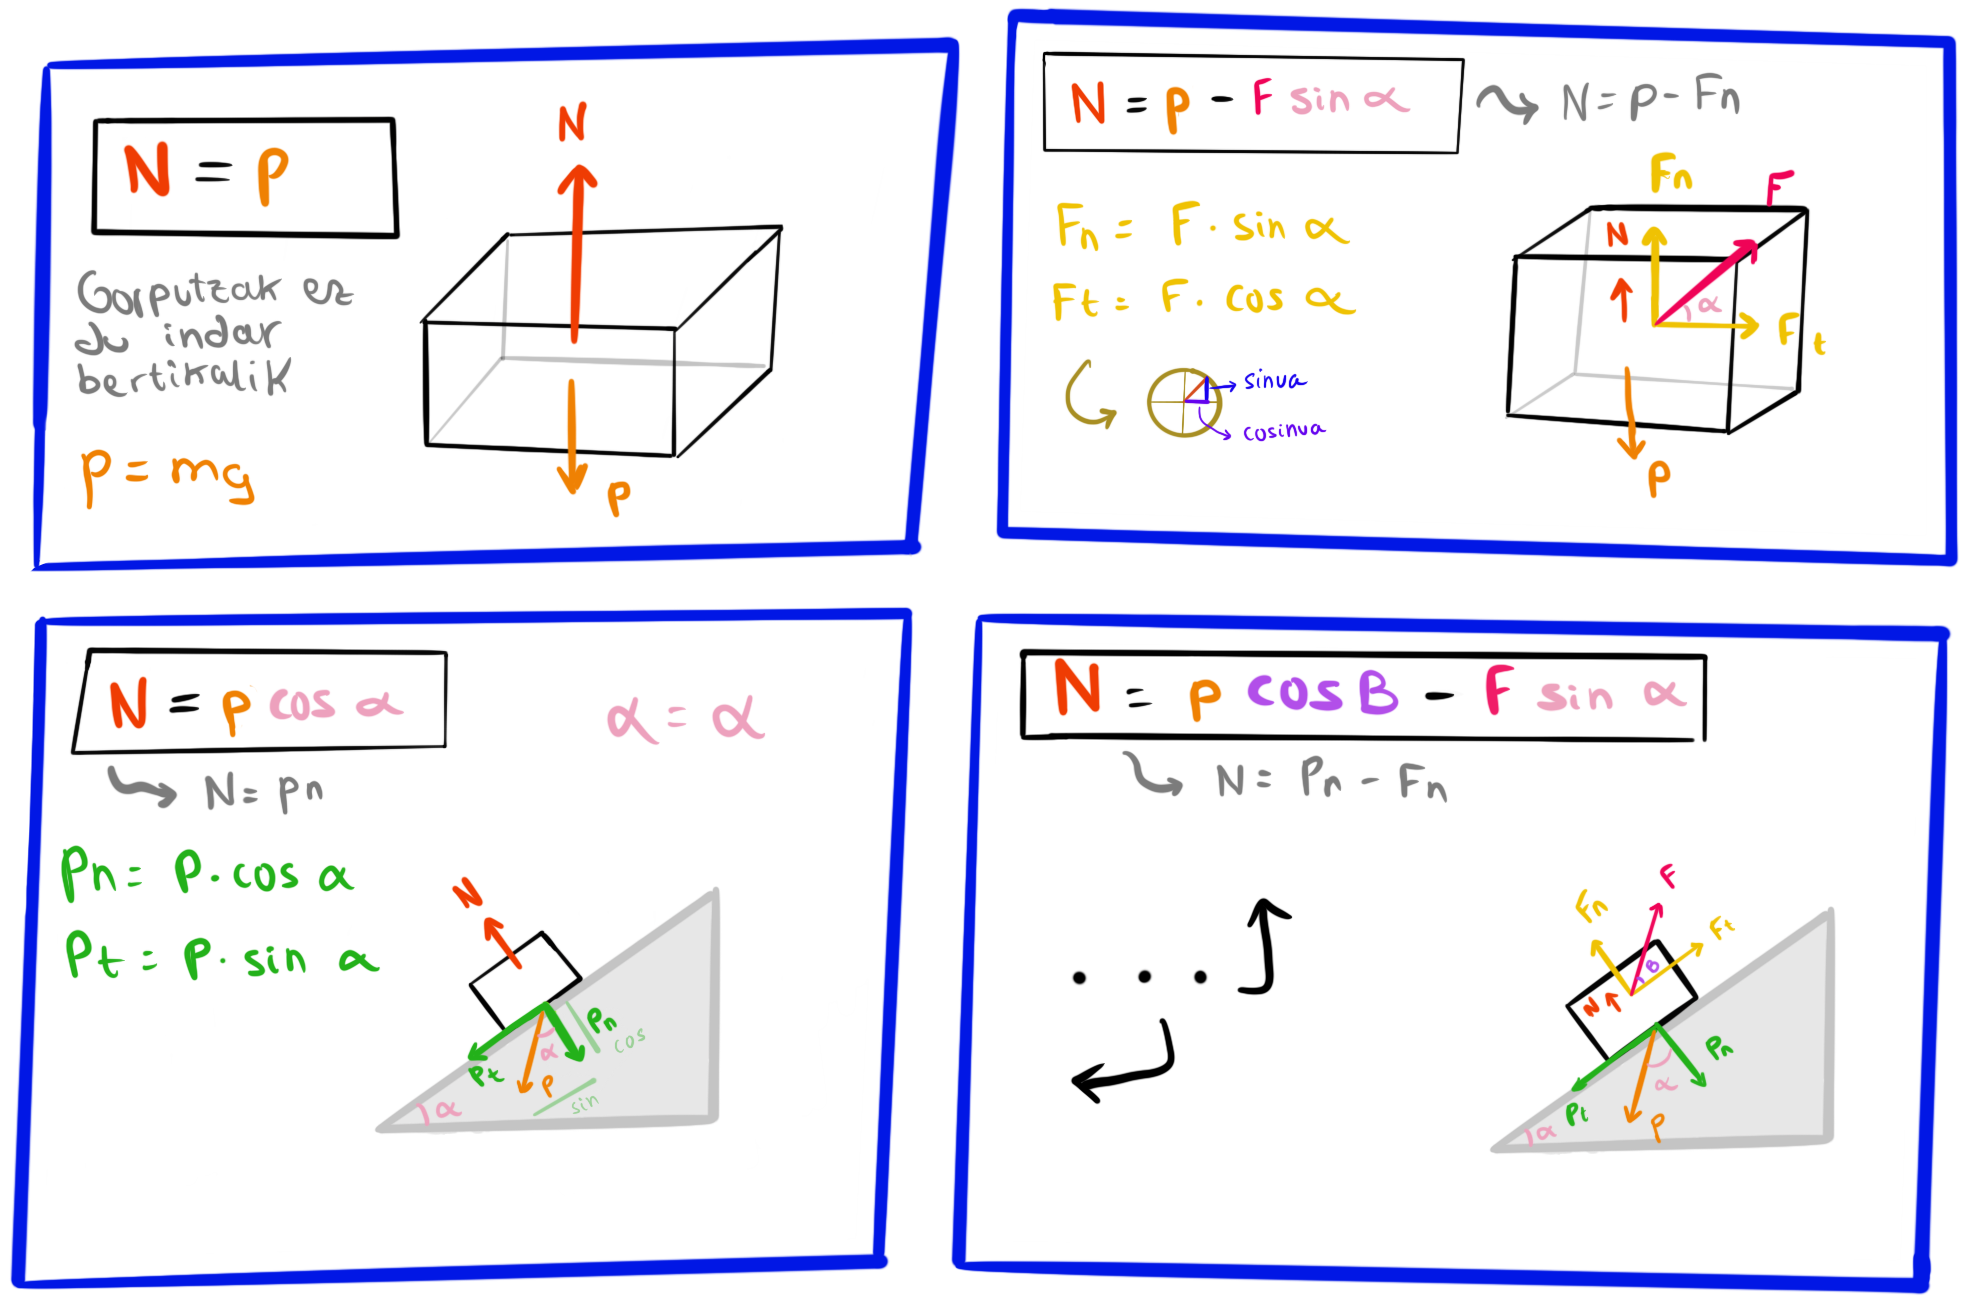 N = p
N
Gorputzak ez
du indar
bertikalik
p = mg
p
N = p - F sin α
N = p - Fn
Fn = F · sin α
Ft = F · cos α
sinua
cosinua
Fn
F
N
α
Ft
p
N = p cos α
α = α
N = pn
Pn = P · cos α
Pt = P · sin α
N
Pn
cos
α
Pt
p
sin
α
N = p cos B - F sin α
N = Pn - Fn
...
F
Fn
Ft
B
N
Pn
α
Pt
p
α